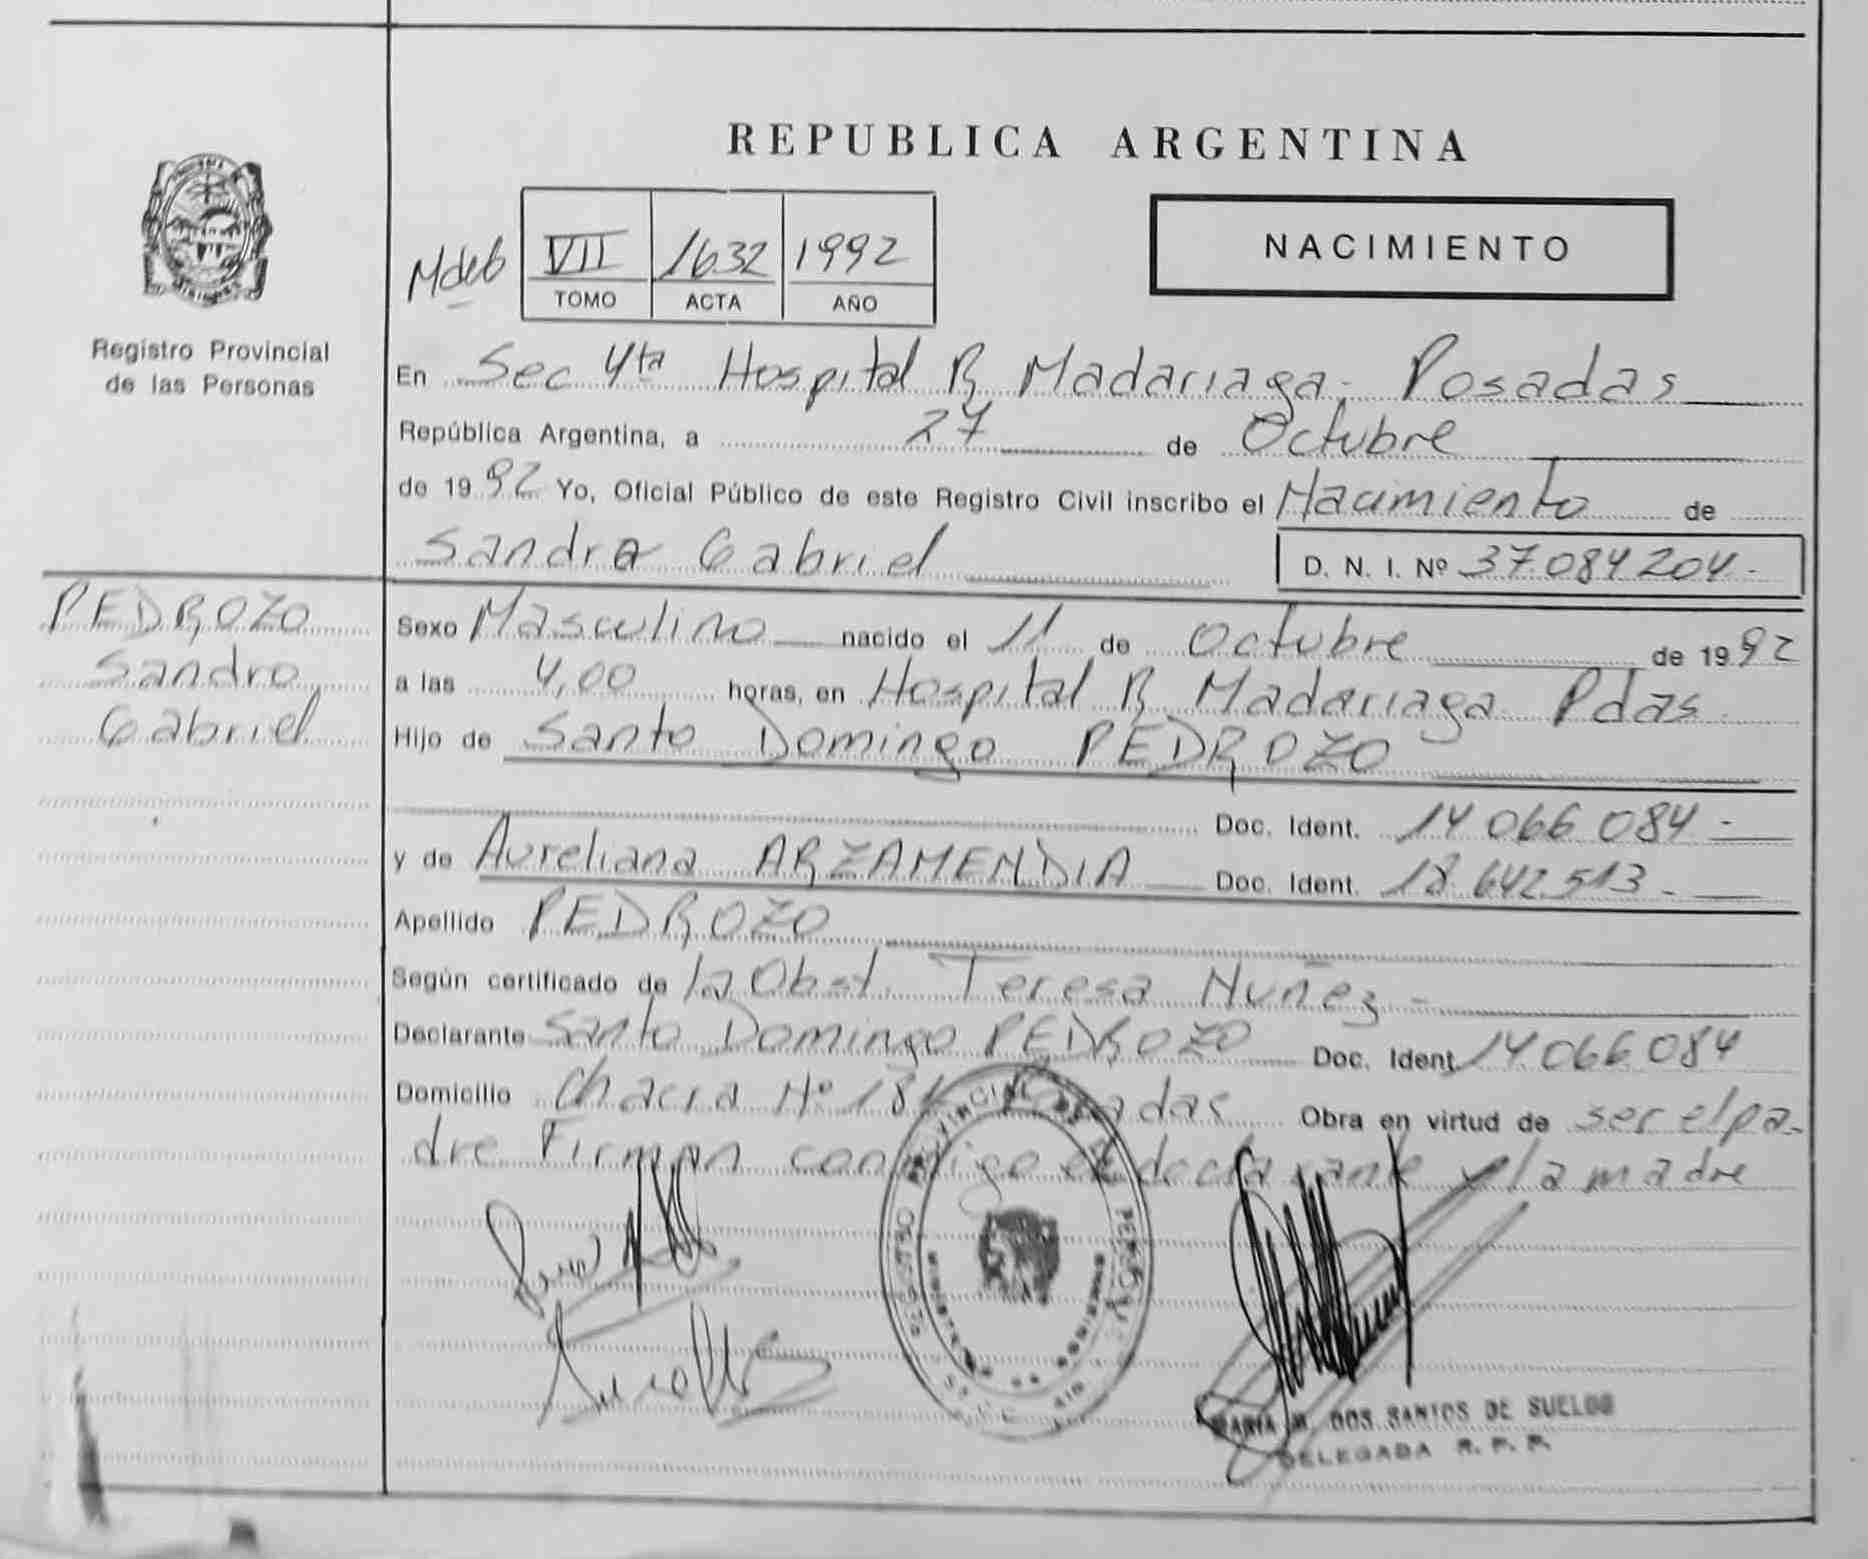 REPUBLICA ARGENTINA
VII 1632 1992
TOMO ACTA AÑO
NACIMIENTO
Registro Provincial
de las Personas
En Sec 4ta Hospital R Madariaga. Posadas
República Argentina, a 27 de Octubre
de 1992 Yo, Oficial Público de este Registro Civil inscribo el Nacimiento de
Sandro Gabriel
D. N. I. Nº 37084204.-
PEDROZO
Sandro
Gabriel
Sexo Masculino nacido el 11 de Octubre de 1992
a las 4,00 horas, en Hospital R Madariaga Pdas
Hijo de Santo Domingo PEDROZO
Doc. Ident. 14 066 084-
y de Aureliana ARZAMENDIA Doc. Ident. 18 642 513.-
Apellido PEDROZO
Según certificado de la Obst. Teresa Nuñez-
Declarante Santo Domingo PEDROZO Doc. Ident 14066084
Domicilio Chacra Nº Posadas Obra en virtud de ser el pa-
dre Firman conmigo el declarante y la madre
MARIA M. DOS SANTOS DE SUELDO
DELEGADA R. P. P.